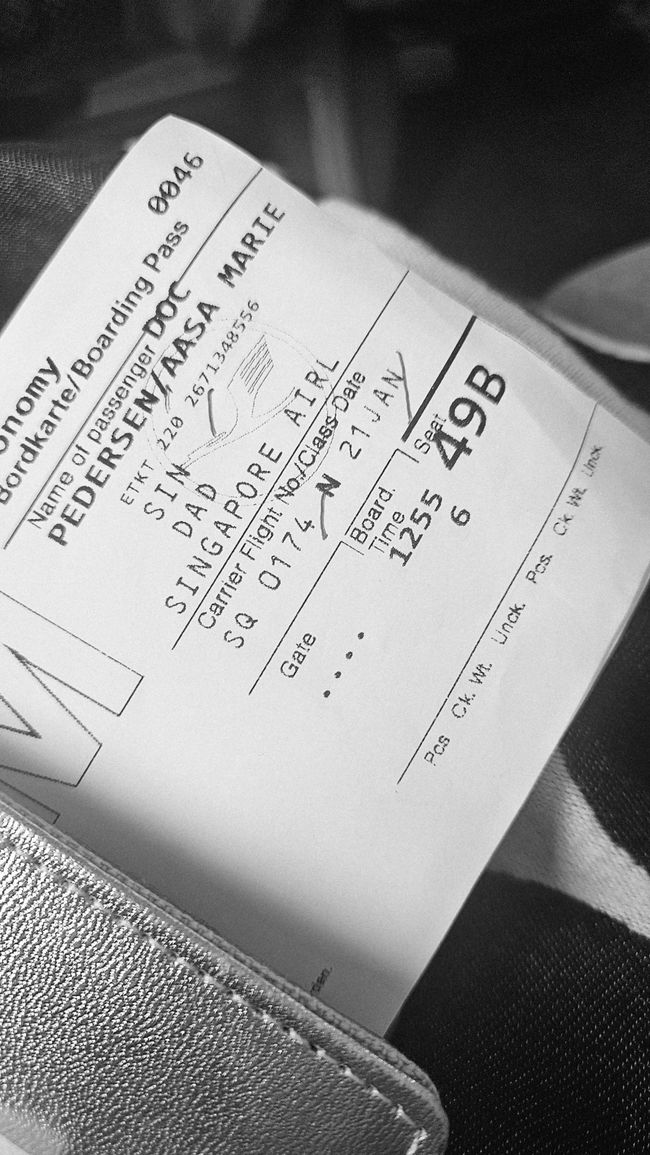 onomy
Bordkarte/Boarding Pass 0046
Name of passenger DOC
PEDERSEN/AASA MARIE
ETKT 220 2671348556
SIN
DAD
SINGAPORE AIRL
Carrier Flight No./Class Date
SQ 0174 N 21JAN
Gate Board. Time Seat
.... 1255 49B
6
Pcs Ck. Wt. Unck. Pcs. Ck. Wt. Unck
M